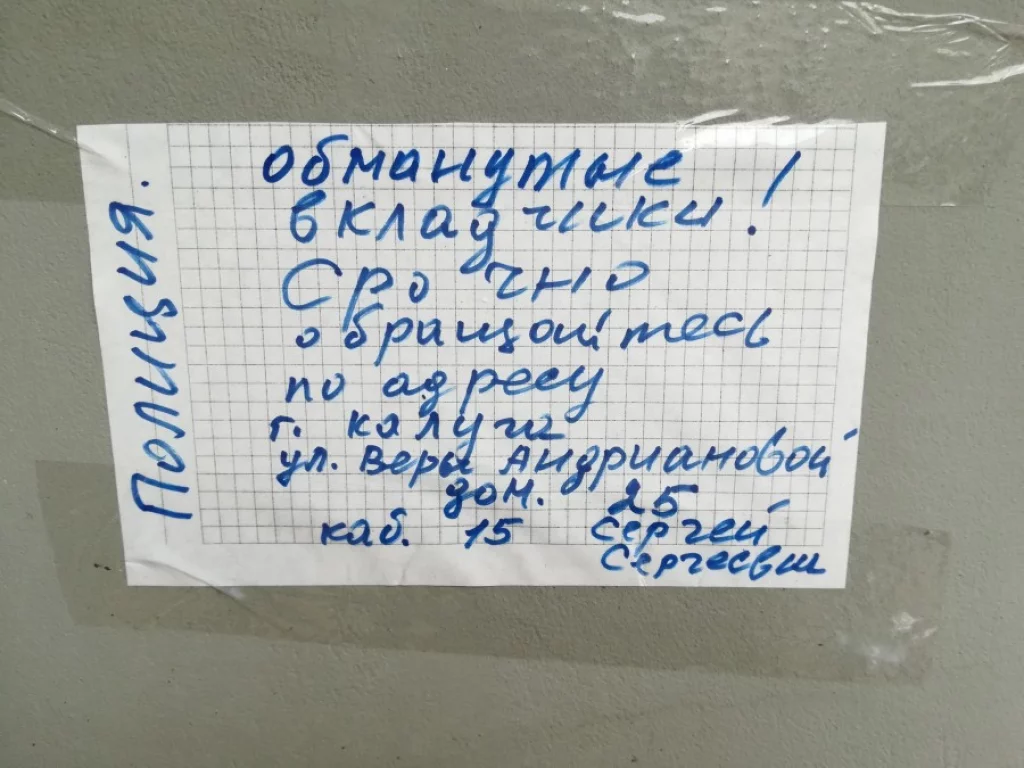 Полиция.
обманутые !
вкладчики!
Срочно
обращайтесь
по адресу
г. калуга
ул. Веры Андриановой
дом. 25
каб. 15 Сергей
Сергеевич